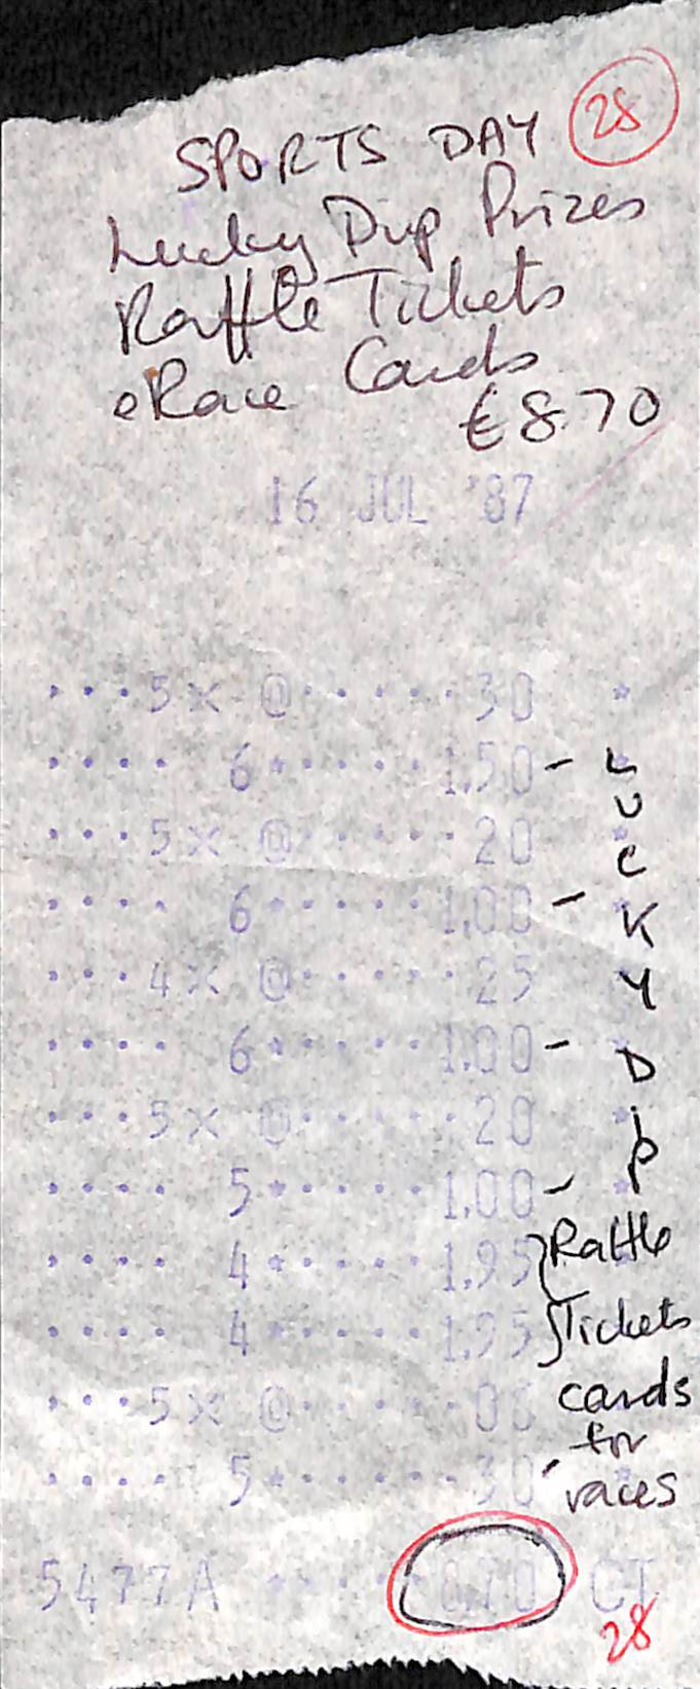 SPORTS DAY 28
Lucky Dip Prizes
Raffle Tickets
& Race Cards
£8.70
16 JUL '87
····5× @······30 *
···· 6*·····1.50 – L
U
···5× @······20 C
···· 6*·····1.00 – K
···4× @······25 Y
···· 6*·····1.00 – D
···5× @······20 i
P
···· 5*·····1.00 –
···· 4*·····1.95 } Raffle
···· 4*·····1.95 } Tickets
···5× @······06 cards
for
···· 5*······30 – races
5477A ··*····8.70 CT
28